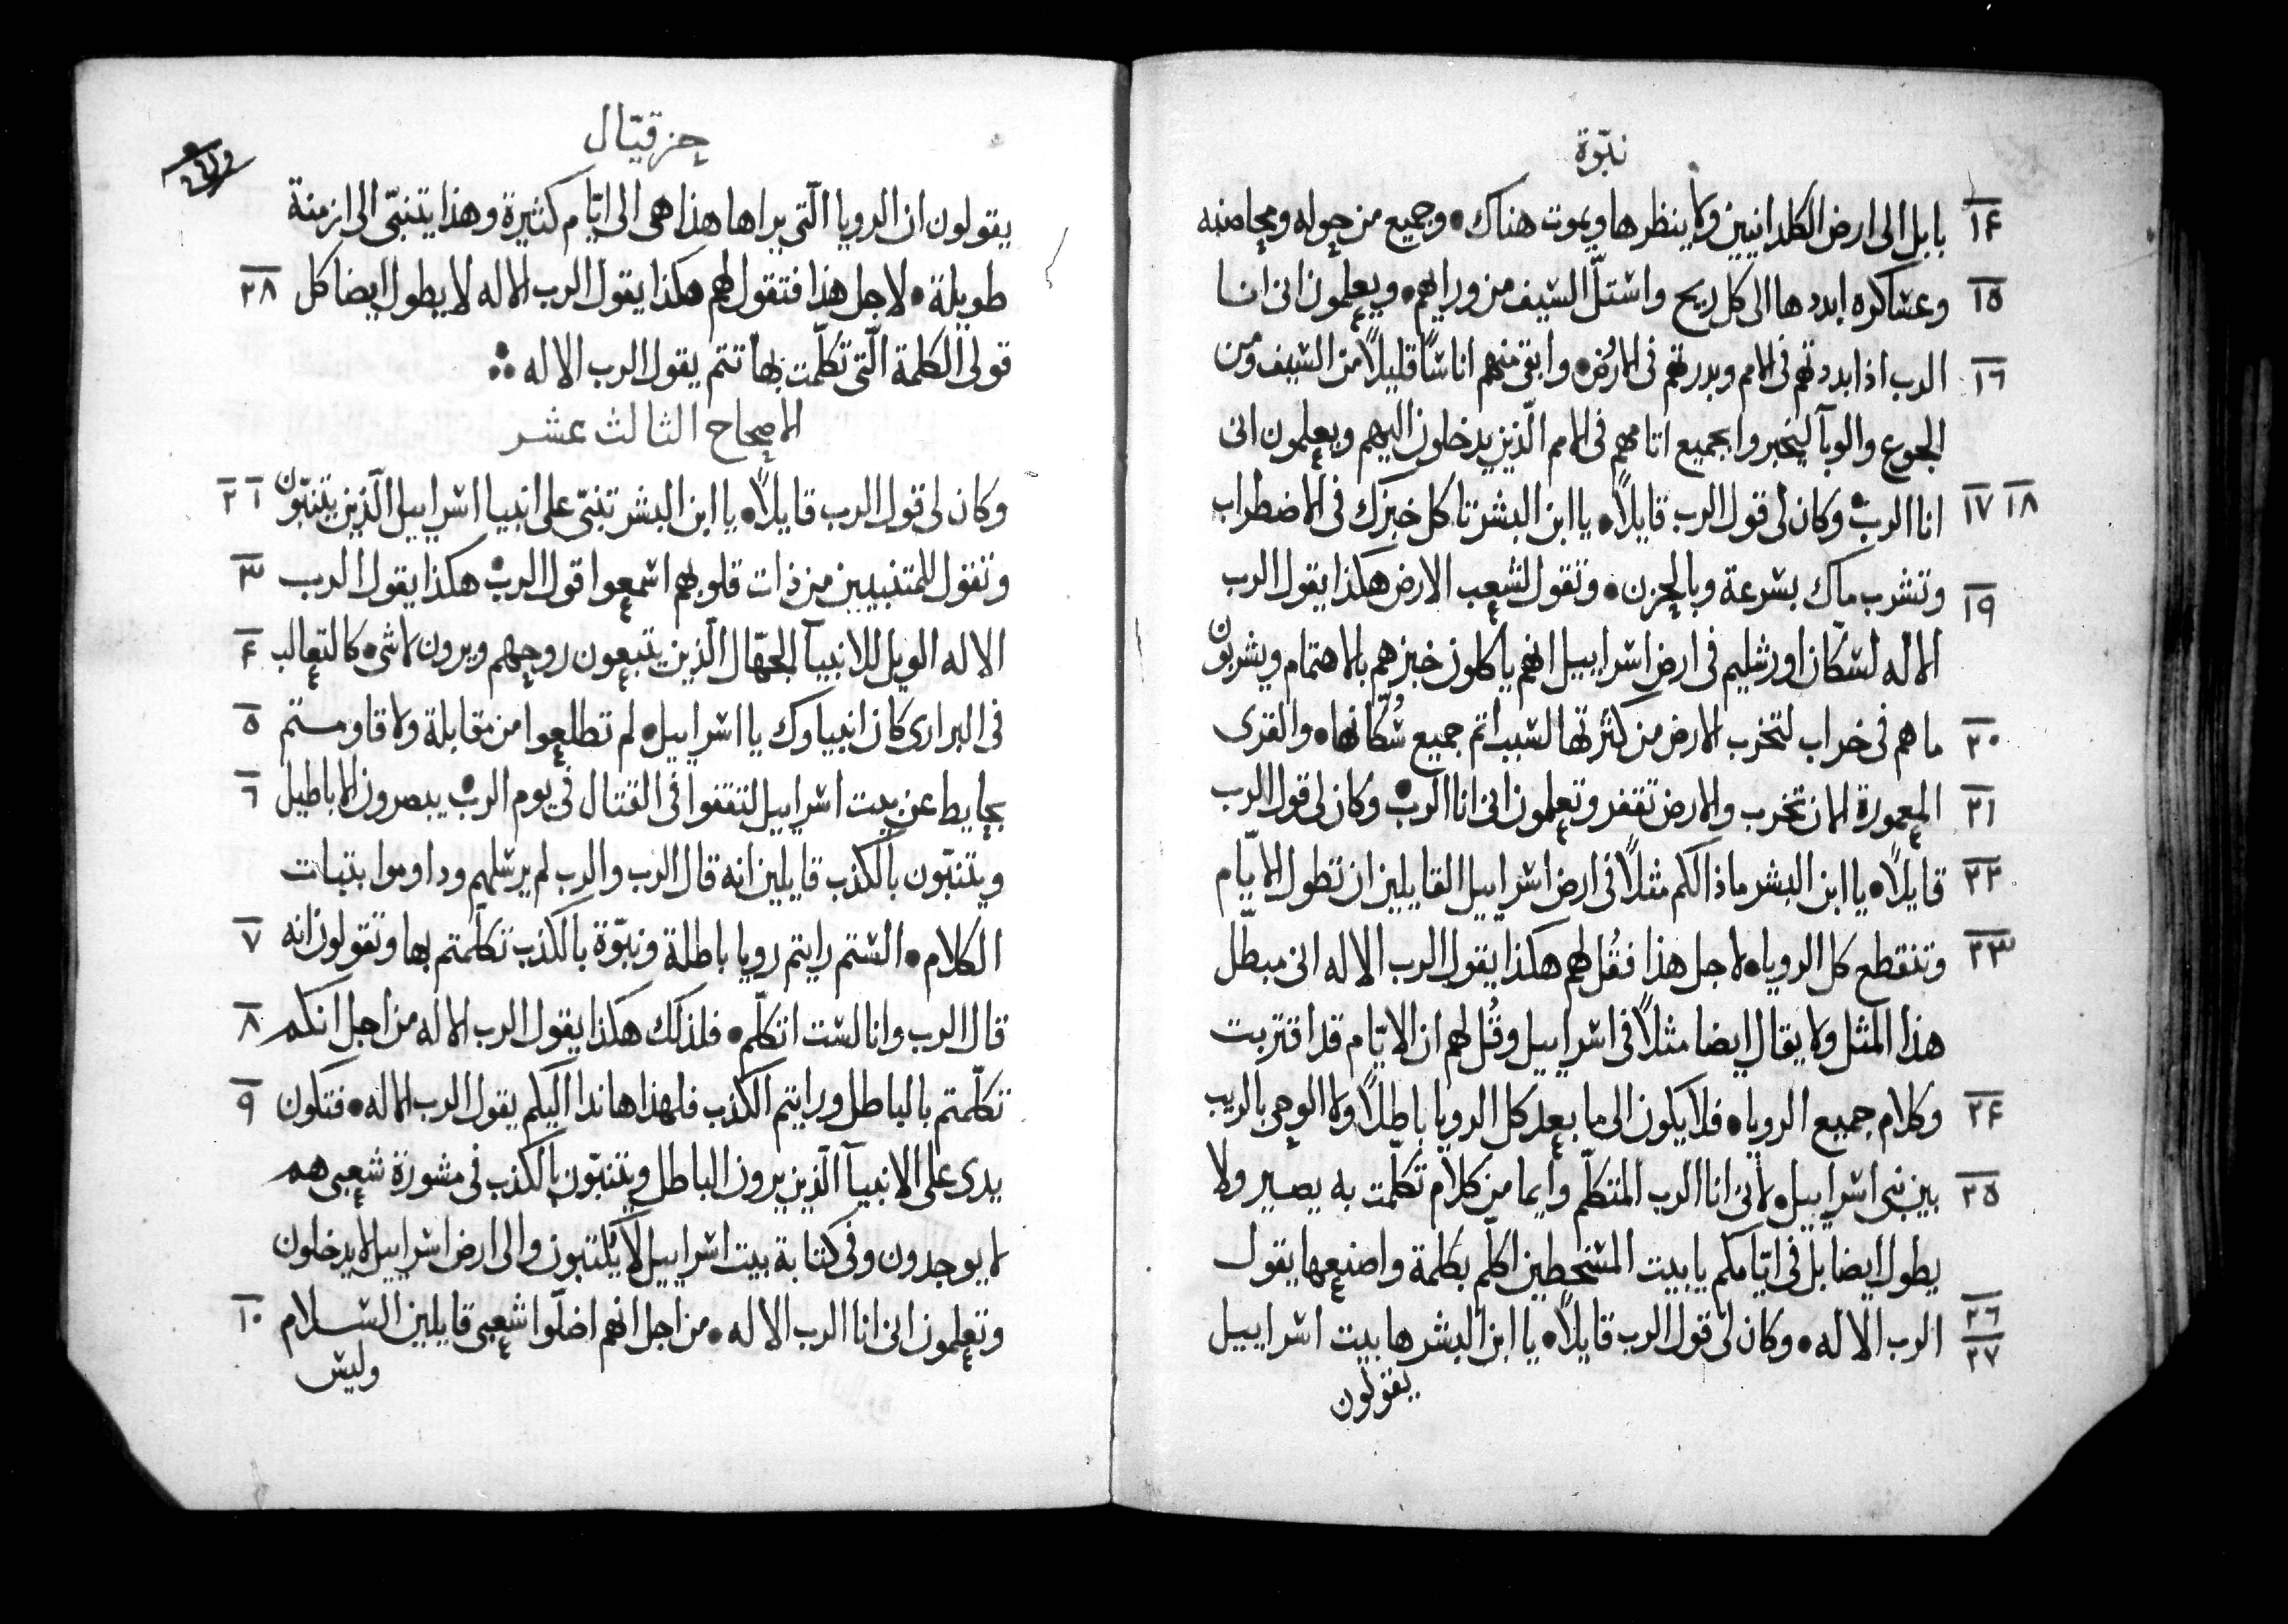 نبّوة
١٤ بابل الى ارض الكلدانيين ولا ينظرها ويموت هناك • وجميع من حوله ومحاصنه
١٥ وعساكره ابددها الى كل ريح واستلّ السيف من ورايهم • ويعلمون انى انا
١٦ الرب اذا ابددتهم فى الامم وبدرتهم فى الارض • وابقى منهم اناسًا قليلاً من السيف ومن
الجوع والوبآ ليخبروا بجميع اثامهم فى الامم الّذين يدخلون اليهم ويعلمون انى
١٧ ١٨ انا الرب • وكان لى قول الرب قايلاً • يا ابن البشر تاكل خبزك فى الاضطراب
١٩ وتشرب ماك بسرعة وبالحزن • وتقول لشعب الارض هكذا يقول الرب
الاله لسكّان اورشليم فى ارض اسراييل انهم ياكلون خبزهم بالاهتمام ويشربون
٢٠ ماهم فى خراب لتخرب الارض من كثرتها لسبب اثم جميع سُكّانها • والقرى
٢١ المعمورة الان تخرب والارض تقفر وتعلمون انى انا الرب • وكان لى قول الرب
٢٢ قايلاً • يا ابن البشر ماذا لكم مثلاً فى ارض اسراييل القايلين ان تطول الايّام
٢٣ وتنقطع كل الرويا • لاجل هذا فقُل لهم هكذا يقول الرب الاله انى مبطّل
هذا المثل ولا يقال ايضا مثلاً فى اسراييل وقُل لهم ان الايّام قد اقتربت
٢٤ وكلام جميع الرويا • فلا يكون الى ما بعد كل الرويا باطلاً ولا الوحى بالريب
٢٥ بين بنى اسراييل • لانى انا الرب المتكلّم وايما من كلام تكلّمت به يصير ولا
يطول ايضا بل فى ايّامكم يا بيت المسخطين اكلّم بكلمة واصنعها يقول
٢٦ ٢٧ الرب الاله • وكان لى قول الرب قايلاً • يا ابن البشر ها بيت اسراييل
يقولون
حزقيّال
يقولون ان الرويا الّتى يراها هذا هى الى ايّام كثيرة وهذا يتنبّى الى ازمنة
٢٨ طويلة • لاجل هذا فتقول لهم هكذا يقول الرب الاله لا يطول ايضا كل
قولى الكلمة الّتى تكلّمت بها تتم يقول الرب الاله
الاصحاح الثالث عشر
١ ٢ وكان لى قول الرب قايلاً • يا ابن البشر تنبّى على انبيا اسراييل الّذين يتنبّون
٣ وتقول للمتنبيين من ذات قلوبهم اسمعوا قول الرب • هكذا يقول الرب
٤ الاله الويل للانبيآ الجهّال الّذين يتبعون روحهم ويرون لا شى • كالثعالب
٥ فى البرارى كان انبياوك يا اسراييل • لم تطلعوا من مقابلة ولا قاومتم
٦ بحايط عن بيت اسراييل لتقفوا فى القتال فى يوم الرب • يبصرون الاباطيل
ويتنبّون بالكذب قايلين انه قال الرب والرب لم يرسلهم وداوموا بتبات
٧ الكلام • الستم رايتم رويا باطلة ونبّوة بالكذب تكلّمتم بها وتقولون انه
٨ قال الرب وانا لست اتكلّم • فلذلك هكذا يقول الرب الاله من اجل انكم
٩ تكلّمتم بالباطل ورايتم الكذب فلهذا هاندا اليكم يقول الرب الاله • فتكون
يدى على الانبيآ الّذين يرون الباطل ويتنبّون بالكذب فى مشورة شعبى هم
لا يوجدون وفى كتابة بيت اسراييل لا يُكتبون والى ارض اسراييل لا يدخلون
١٠ وتعلمون انى انا الرب الاله • من اجل انهم اضلّوا شعبى قايلين السلام
وليس